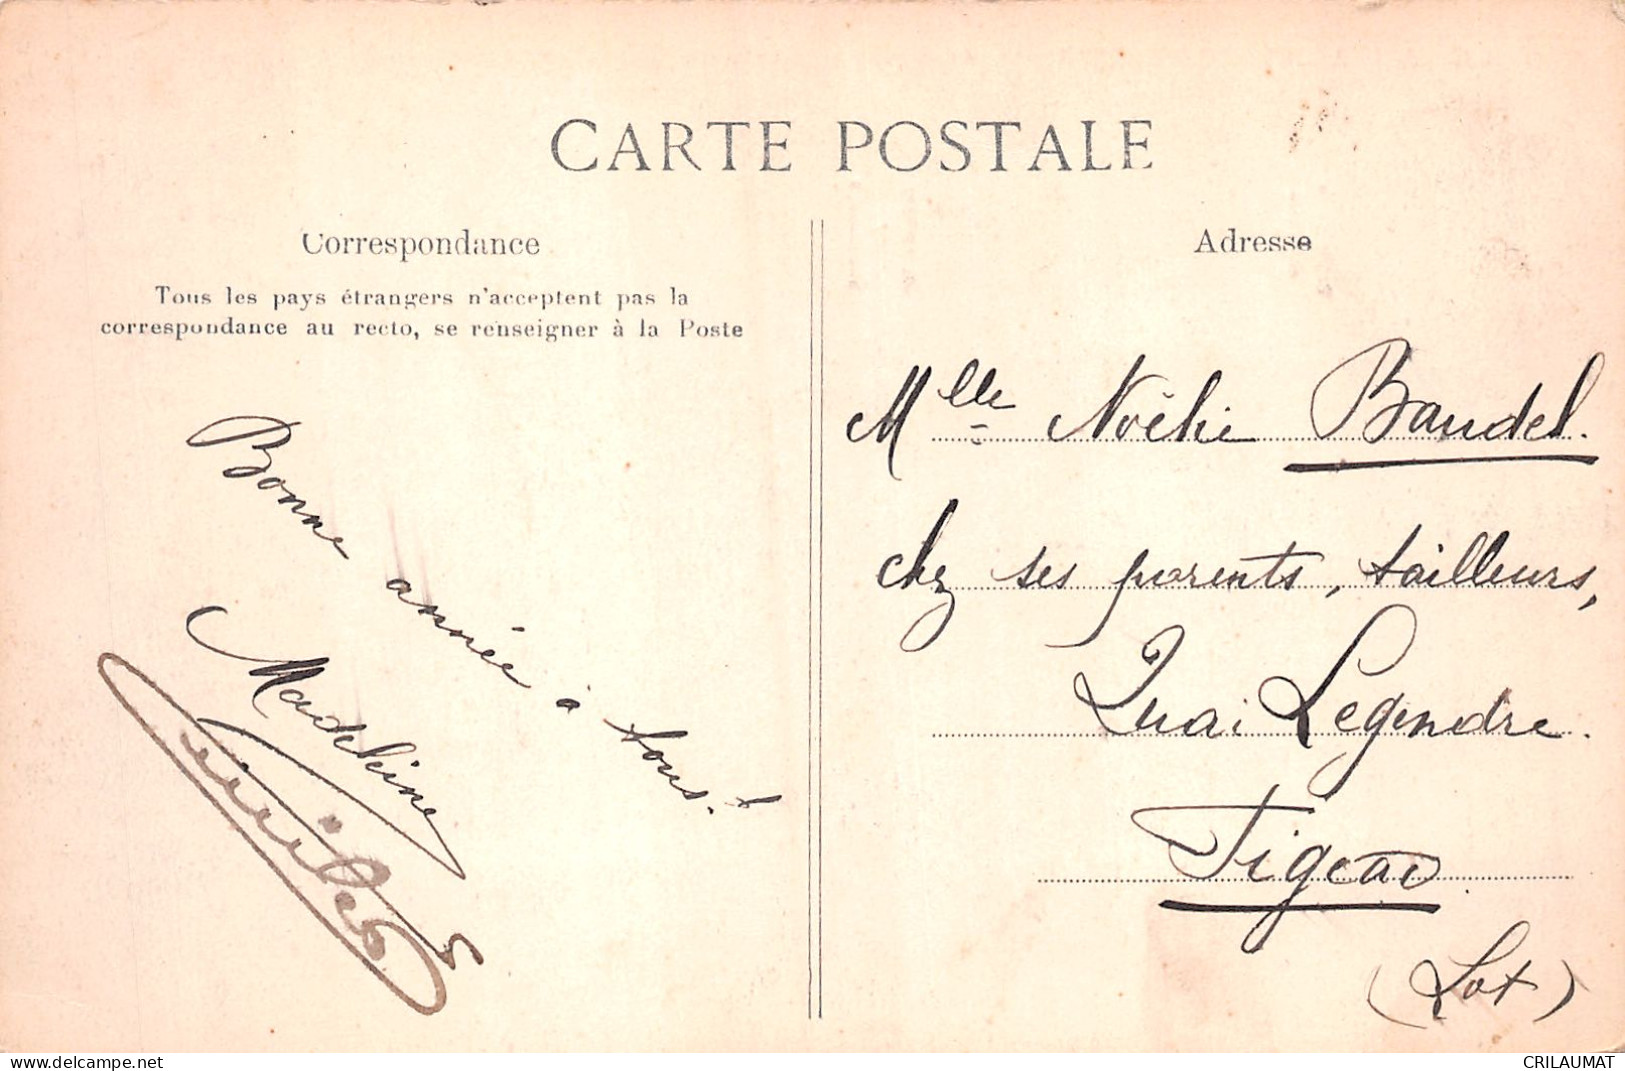 CARTE POSTALE
Correspondance
Tous les pays étrangers n'acceptent pas la
correspondance au recto, se renseigner à la Poste
Bonne année à tous!
Madeleine
Adresse
Mlle Noélie Baudel.
chez ses parents, tailleurs,
Quai Legendre.
Figeac
(Lot)
delcampe.net
CRILAUMAT